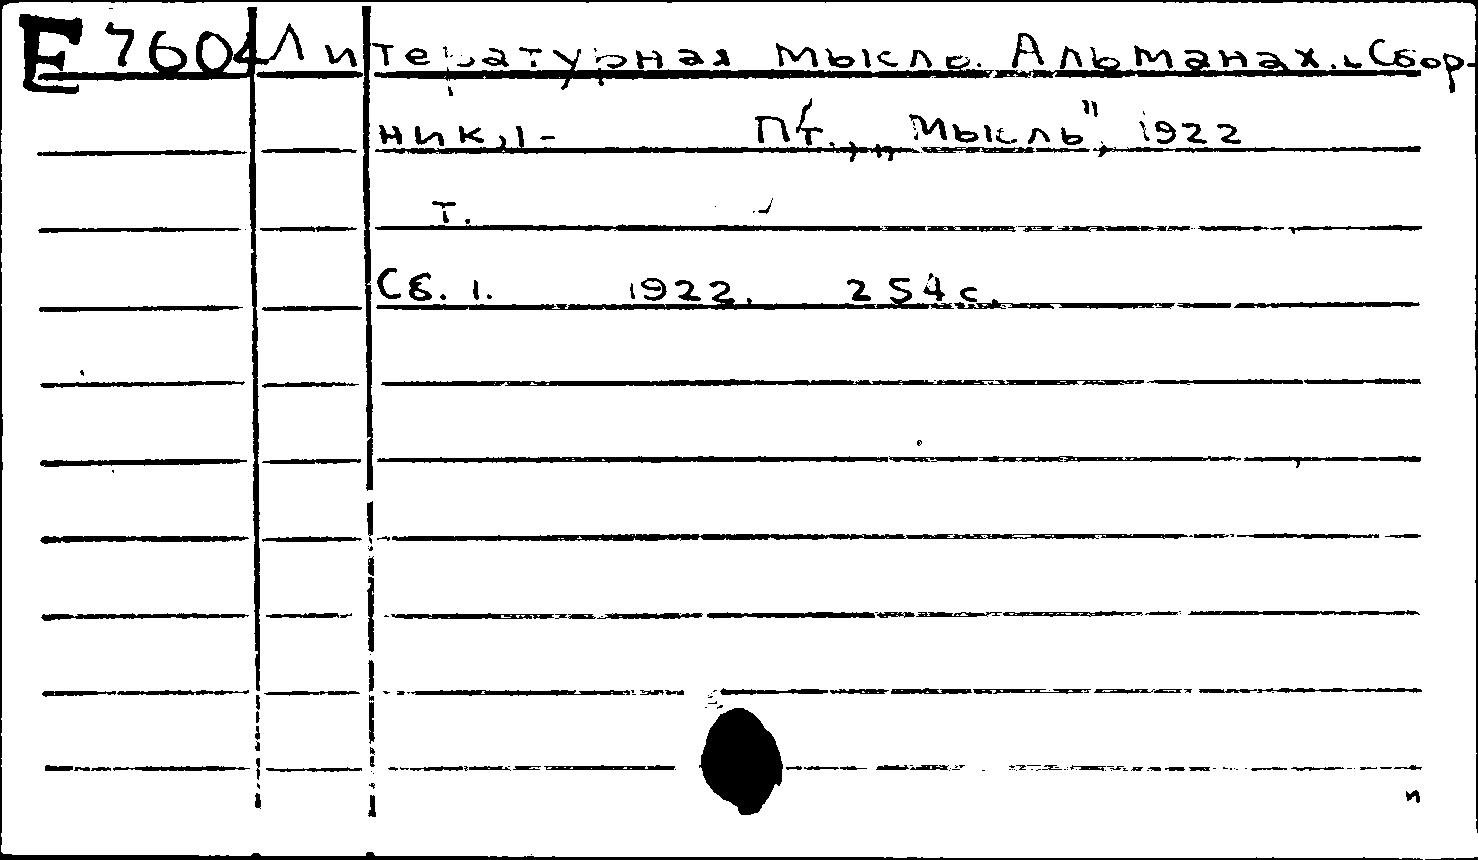 Е 7604 Литературная мысль. Альманах. Сбор-
ник, 1- Пг., „Мысль", 1922
т.
Сб. 1. 1922. 254 с.
и